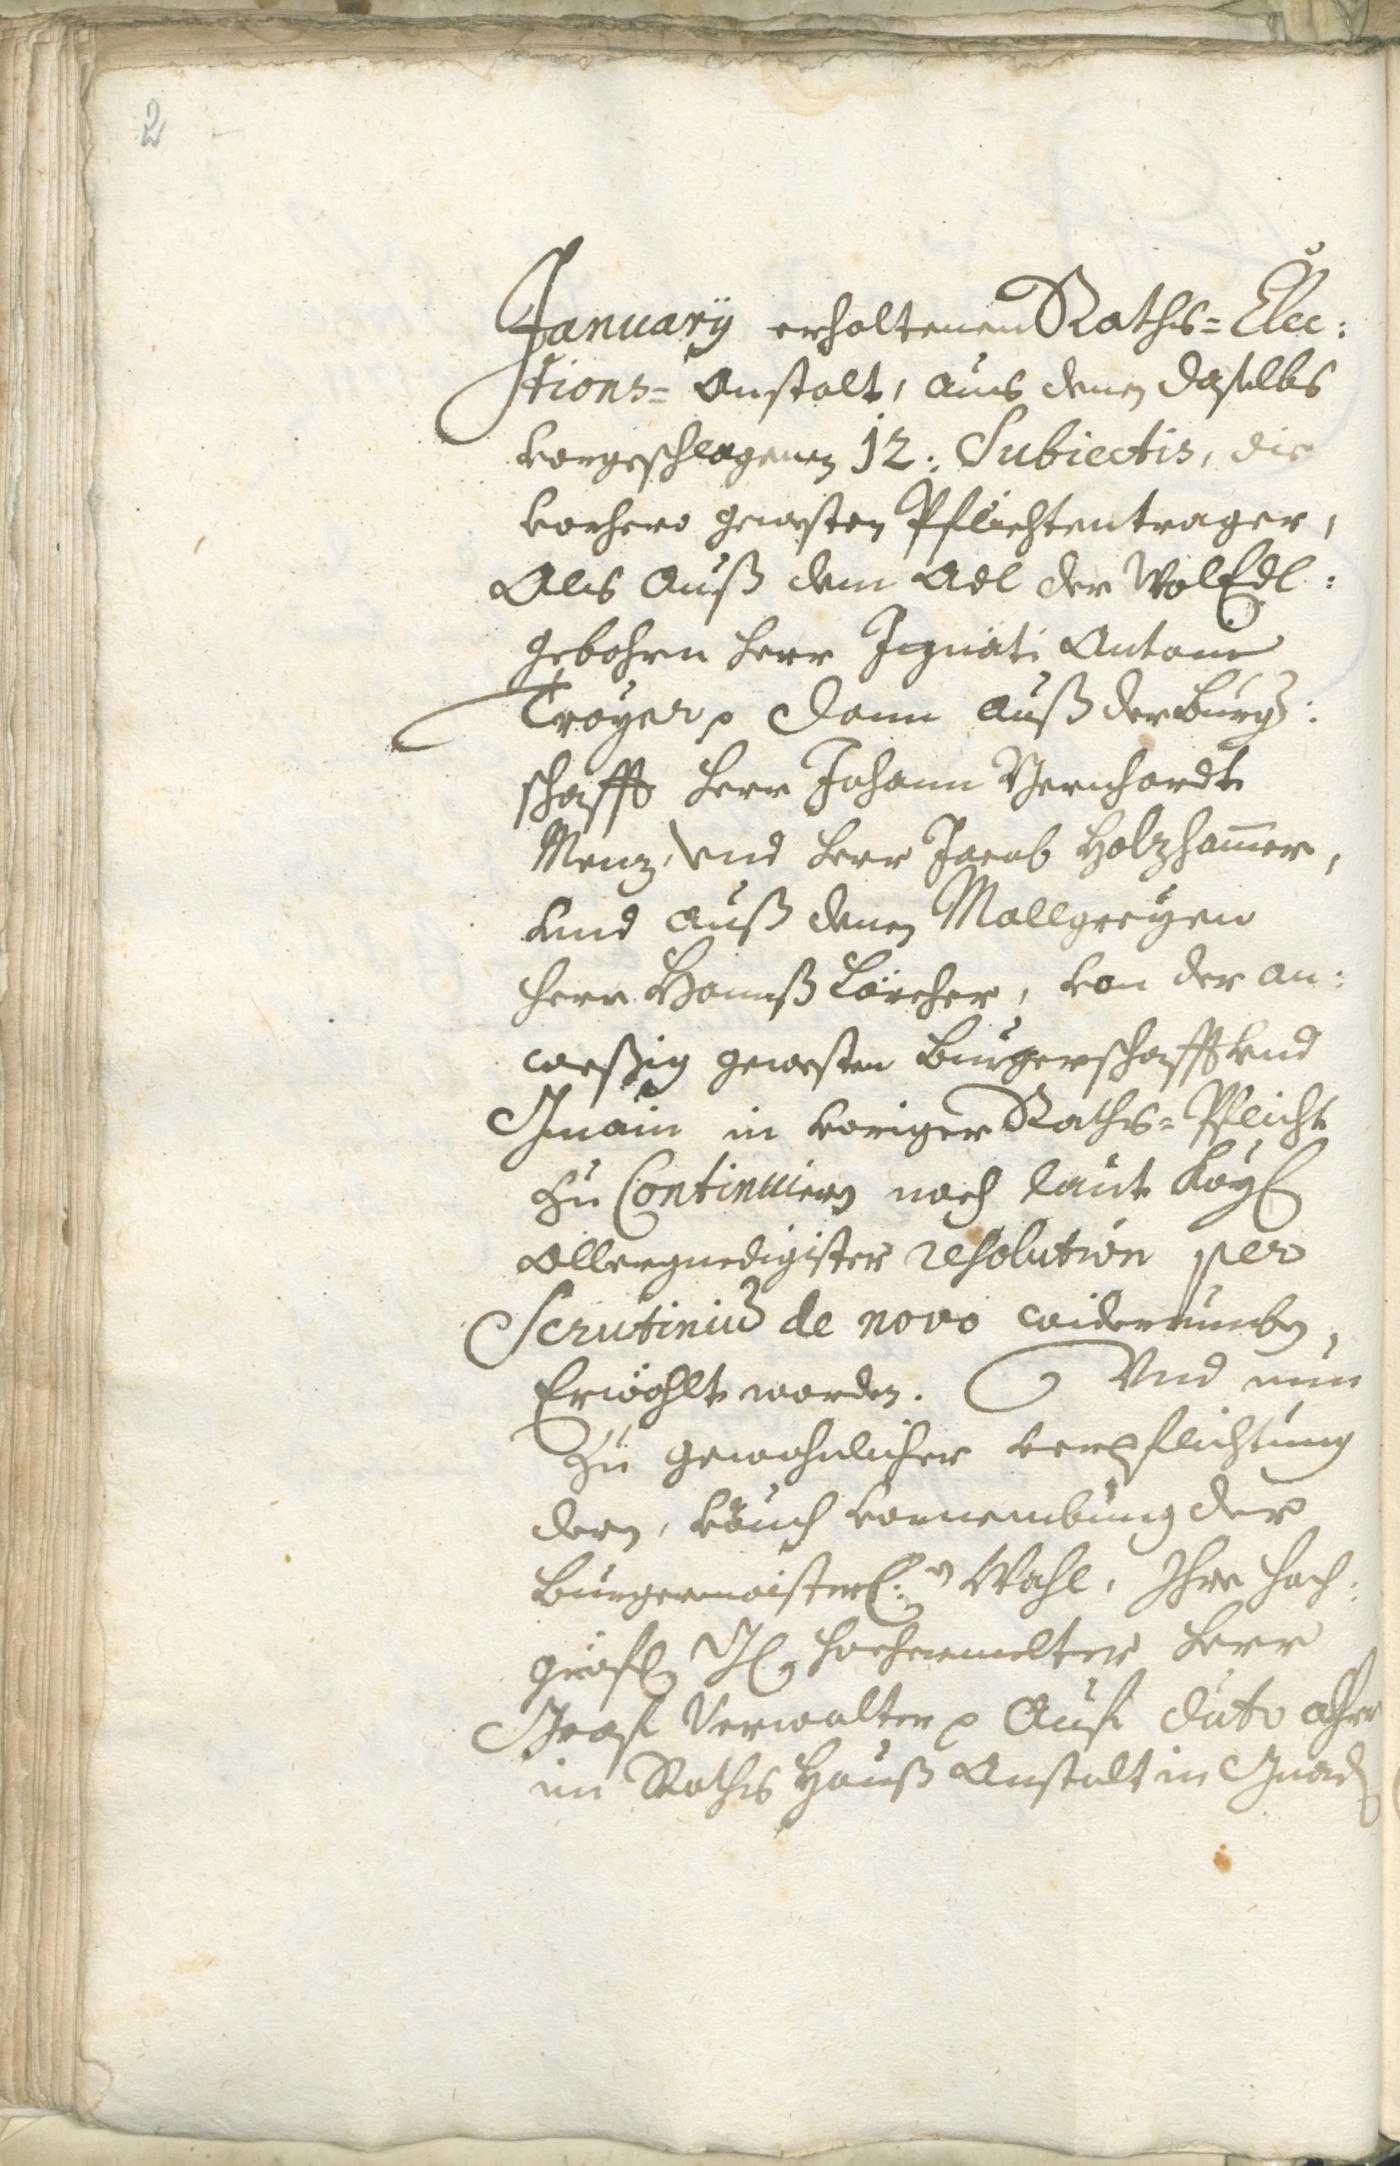 2
Januarÿ erhaltenen Raths=Elec:
tions=Anstalt, aus denen daselbs
vorgeschlagenen 12: Subiectis, die
vorhero gewesten Pflichtentrager,
Als auß dem Adl der WolEdl:
gebohrn Herr Ignati Antoni
Troyer p dann auß der Burg:
schafft Herr Johann Bernhardt
Menz, und Herr Jacob Holzham̄er,
vnd auß denen Mallgreyen
Herr Hannß Lörcher, von der an:
weßig gewesten Burgerschafft vnd
Gmain in voriger Raths=Pflicht
zu Continuiern nach laut Kay:
Allergnedigister resolution per
Scrutiniu de novo widerumben,
Erwöhlt worden. Vnd nun
Zu gewohnlicher verpflichtung
dern, vornembung der
Burgermaister: Wahl, Ihre hoch:
gräf: hochermelter Herr
Graf Verwalter p Auf dato
im Raths Hauß Anstalt in Gnad